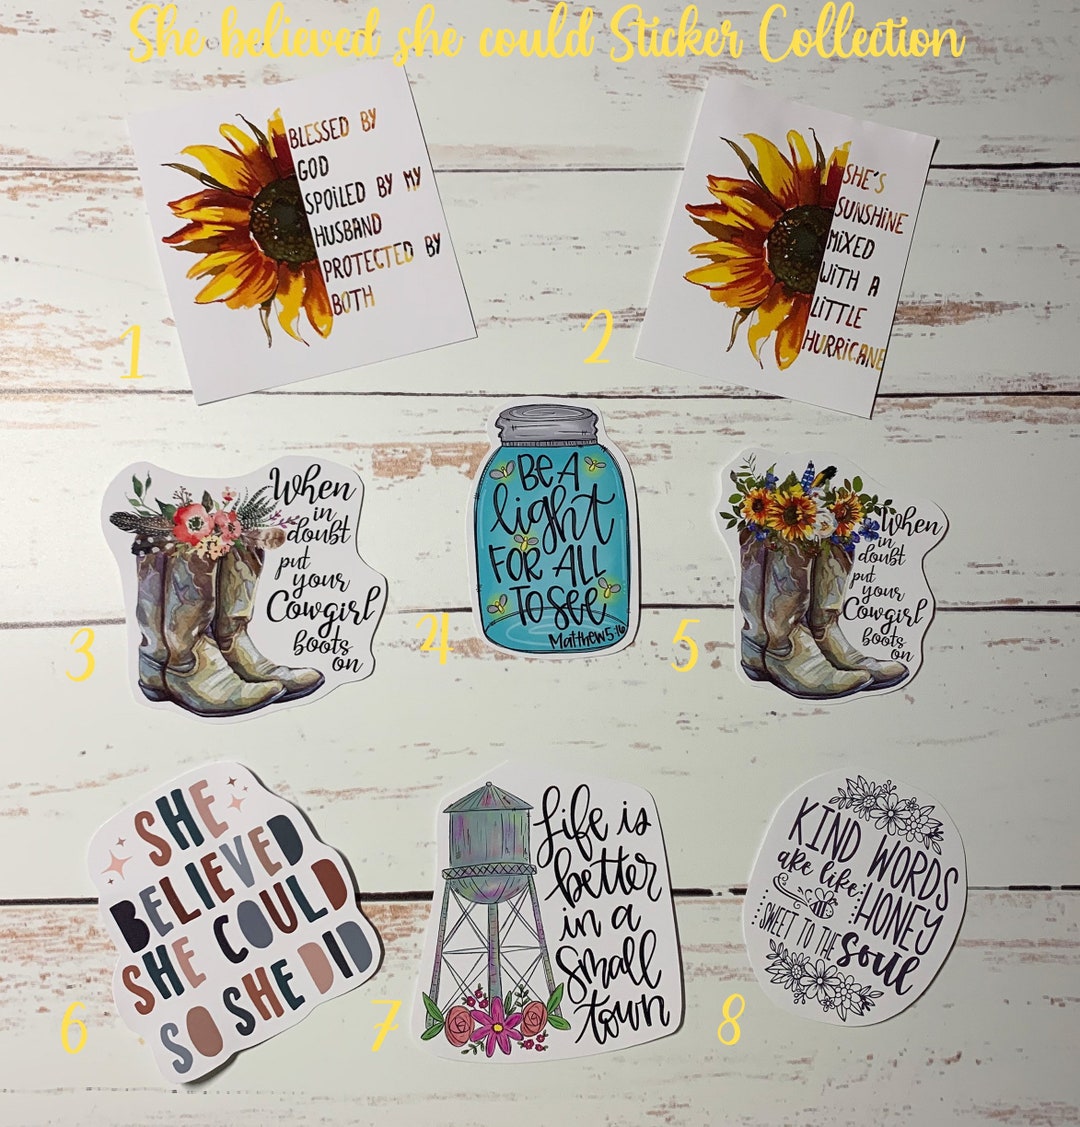 She believed she could Sticker Collection
BLESSED BY
GOD
SPOILED BY MY
HUSBAND
PROTECTED BY
BOTH
1
SHE'S
SUNSHINE
MIXED
WITH A
LITTLE
HURRICANE
2
When
in
doubt
put
your
Cowgirl
boots
on
3
BE A
light
FOR ALL
TO see
Matthew 5:16
4
When
in
doubt
put
your
Cowgirl
boots
on
5
SHE
BELIEVED
SHE COULD
SO SHE DID
6
Life is
better
in a
small
town
7
KIND WORDS
are like
HONEY
SWEET TO THE
soul
8